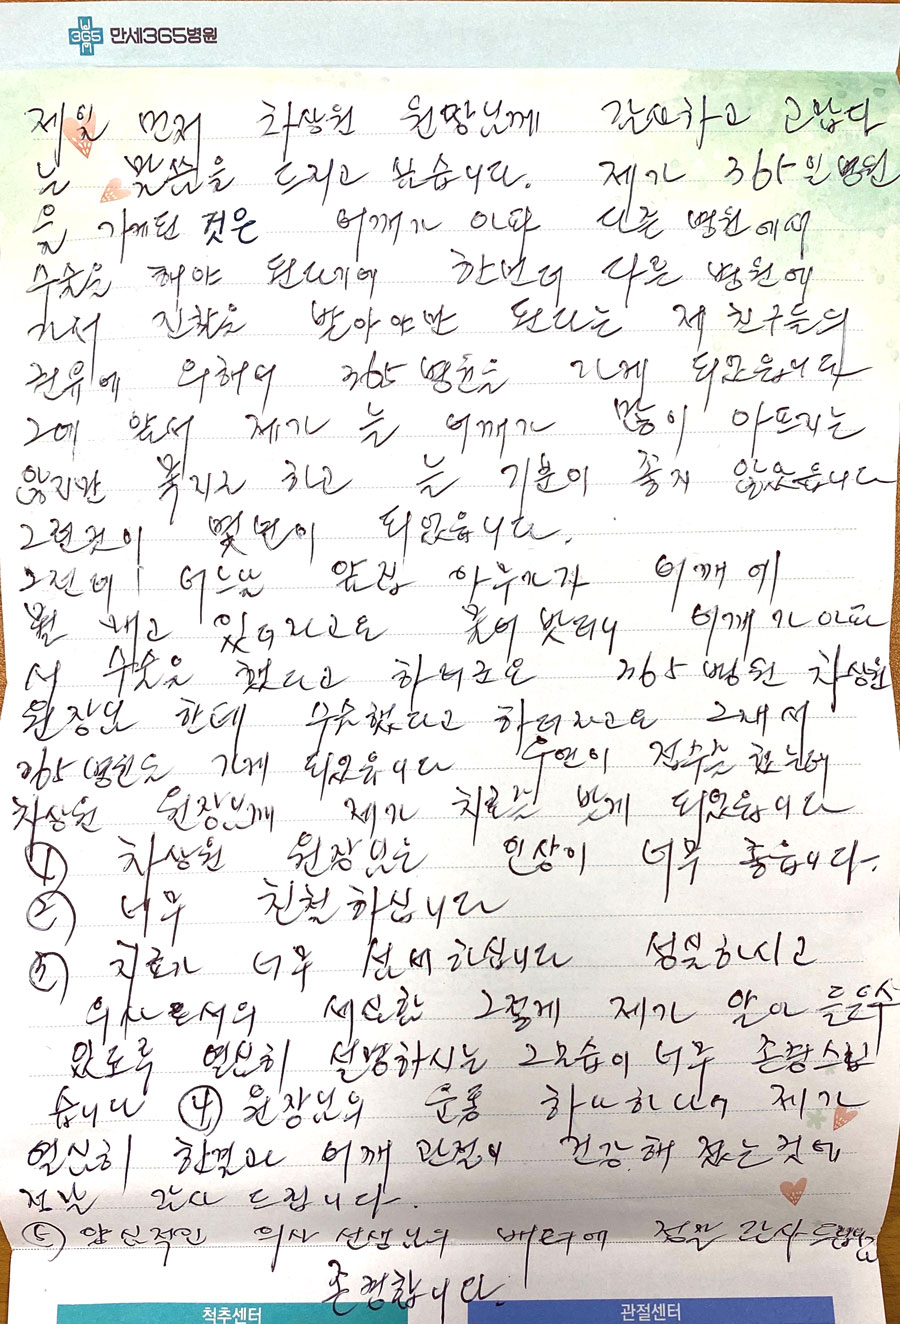 365 만세365병원
제일 먼저 차상원 원장님께 감사하고 고맙다
는 말씀을 드리고 싶습니다. 제가 365일 병원
을 가게된 것은 어깨가 아파 다른 병원에서
수술을 해야 된다기에 한번더 다른 병원에
가서 진찰을 받아야만 된다는 제 친구들의
권유에 의하여 365 병원을 가게 되었읍니다
그에 앞서 제가 늘 어깨가 많이 아프지는
않지만 묵지근 하고 늘 기분이 좋지 않았읍니다
그런것이 몇년이 되었읍니다.
그런데 어느날 앞집 아무가가 어깨에
뭘 매고 있더라고요 물어 밧더니 어깨가 아파
서 수술을 했다고 하더군요 365 병원 차상원
원장님 한데 수술했다고 하더라고요 그래서
365 병원을 가게 되었읍니다 우연이 접수를 했는데
차상원 원장님께 제가 치료를 밧게 되었읍니다
① 차상원 원장님은 인상이 너무 좋읍니다.
② 너무 친철하십니다
③ 치료가 너무 섬세하십니다 성실하시고
의사로서의 세심함 그렇게 제가 알아 들을수
있도록 열심히 설명하시는 그모습이 너무 존경스럽
습니다 ④ 원장님의 운동 하라하니어 제가
열심히 한결과 어깨 관절이 건강해 졌는것에
정말 감사 드립니다.
⑤ 양심적인 의사 선생님의 배려에 정말 감사드립니다
존경합니다.
척추센터 관절센터